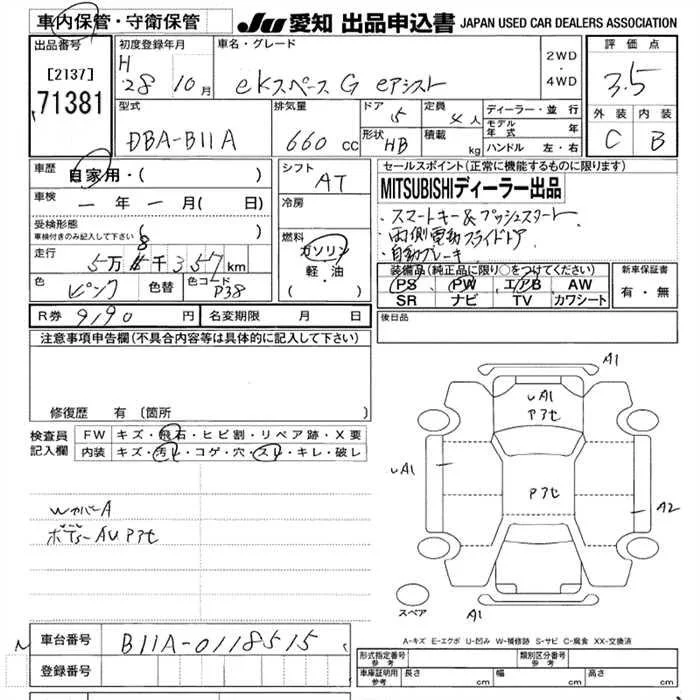 車内保管・守衛保管
JU 愛知 出品申込書 JAPAN USED CAR DEALERS ASSOCIATION
出品番号
[2137]
71381
初度登録年月
H 28 10月
車名・グレード
eKスペース G eアシスト
2WD
・
4WD
評価点
3.5
外装 内装
C B
型式
DBA-B11A
排気量
660 cc
ドア 5
形状 HB
定員 4人
積載 kg
ディーラー・並行
モデル年式 年
ハンドル 左・右
車歴
自家用・( )
車検
一年一月( 日)
受検形態
車検付きのみ記入して下さい
走行
8
5万 千357km
色 ピンク 色替 色コード P38
シフト
AT
冷房
燃料
ガソリン
・
軽・油
( ・ )
セールスポイント(正常に機能するものに限ります)
MITSUBISHIディーラー出品
・スマートキー&プッシュスタート
・両側電動スライドドア
・自動ブレーキ
装備品(純正品に限り○をつけてください)
PS PW エアB AW
SR ナビ TV カワシート
新車保証書
有・無
R券 9190 円 名変期限 月 日
後日品
注意事項申告欄(不具合内容等は具体的に記入して下さい)
修復歴 有(箇所
検査員記入欄
FW キズ・飛石・ヒビ割・リペア跡・X要
内装 キズ・汚レ・コゲ・穴・スレ・キレ・破レ
WカバーA
ボデーAUアセ
A1
UA1
アセ
UA1
アセ
A2
A1
スペア
A-キズ E-エクボ U-凹み W-補修跡 S-サビ C-腐食 XX-交換済
車台番号 B11A-0118515
登録番号
形式指定番号 参考
類別区分番号 参考
車庫証明用 参考 長さ cm 幅 cm 高さ cm